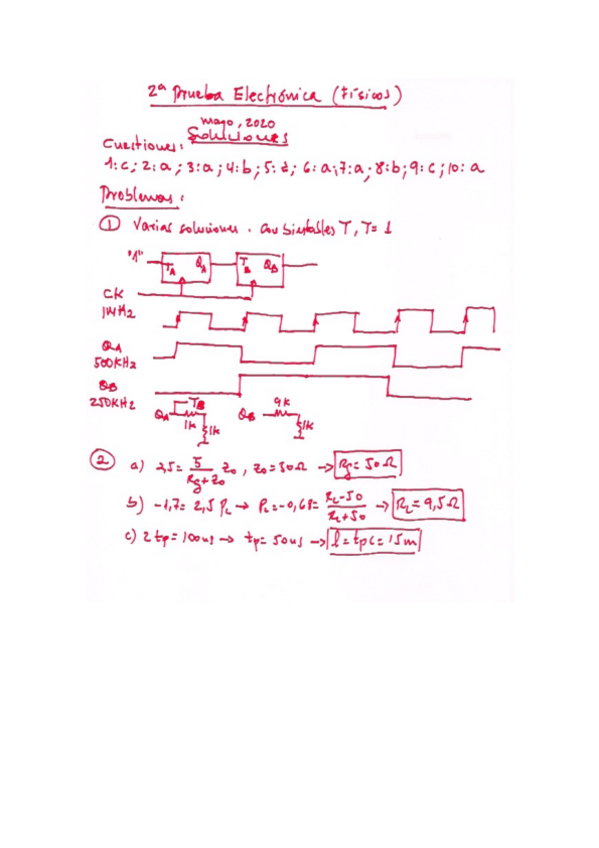 2ª Prueba Electrónica (Físicos)
mayo, 2020
Soluciones
Cuestiones:
1: c; 2: a; 3: a; 4: b; 5: d; 6: a; 7: a; 8: b; 9: c; 10: a
Problemas:
① Varias soluciones. Con biestables T, T=1
"1" TA QA TB QB
CK
1MHz
QA
500KHz
QB
250KHz
QA TB 1K 1K QB 9K 1K
② a) 2,5 = 5/(Rg+Z0) Z0, Z0=50Ω → Rg = 50Ω
b) -1,7 = 2,5 ρL → ρL = -0,68 = (RL-50)/(RL+50) → RL = 9,5Ω
c) 2tp = 100ns → tp = 50ns → l = tp c = 15m